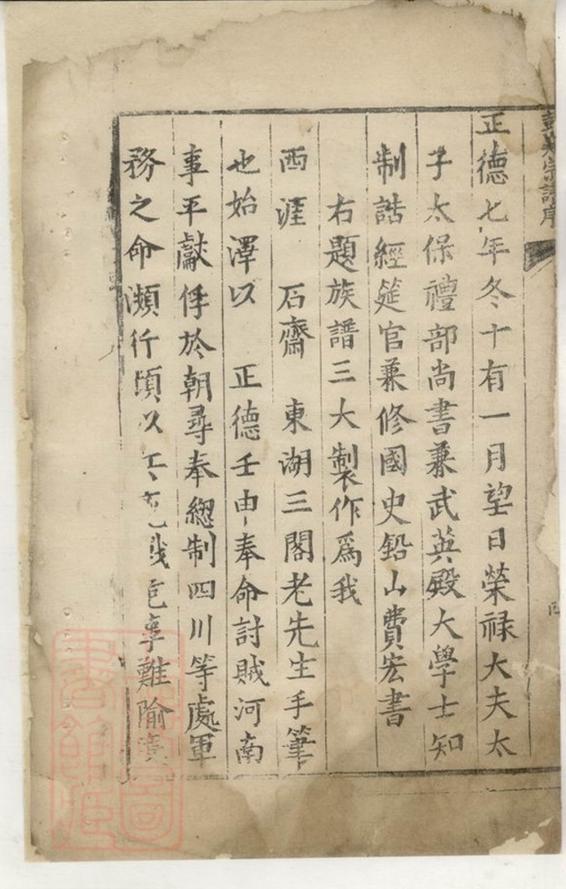 宗譜序
正德七年冬十有一月望日榮祿大夫太
子太保禮部尚書兼武英殿大學士知
制誥經筵官兼修國史鉛山費宏書
右題族譜三大製作爲我
西涯　石齋　東湖三閣老先生手筆
也始澤以　正德壬申奉命討賊河南
事平獻俘於朝尋奉總制四川等處軍
務之命瀕行頃以
難隃